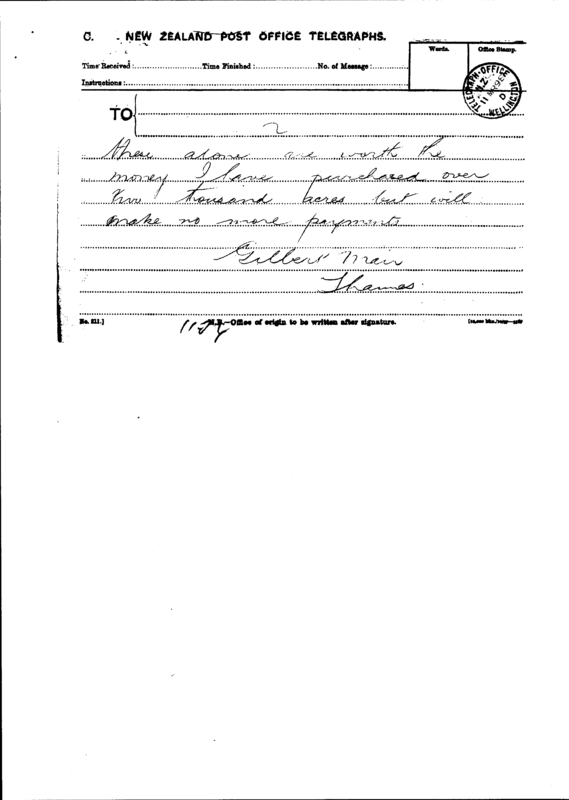 C. NEW ZEALAND POST OFFICE TELEGRAPHS.
Words. Office Stamp.
Time Received: Time Finished: No. of Message:
Instructions:
TELEGRAPH-OFFICE N.Z. 11 WELLINGTON
TO
2
these alone are worth the
money I have purchased over
two thousand acres but will
make no more payments
Gilbert Mair
Thames.
No. 211.]
N.B.—Office of origin to be written after signature.